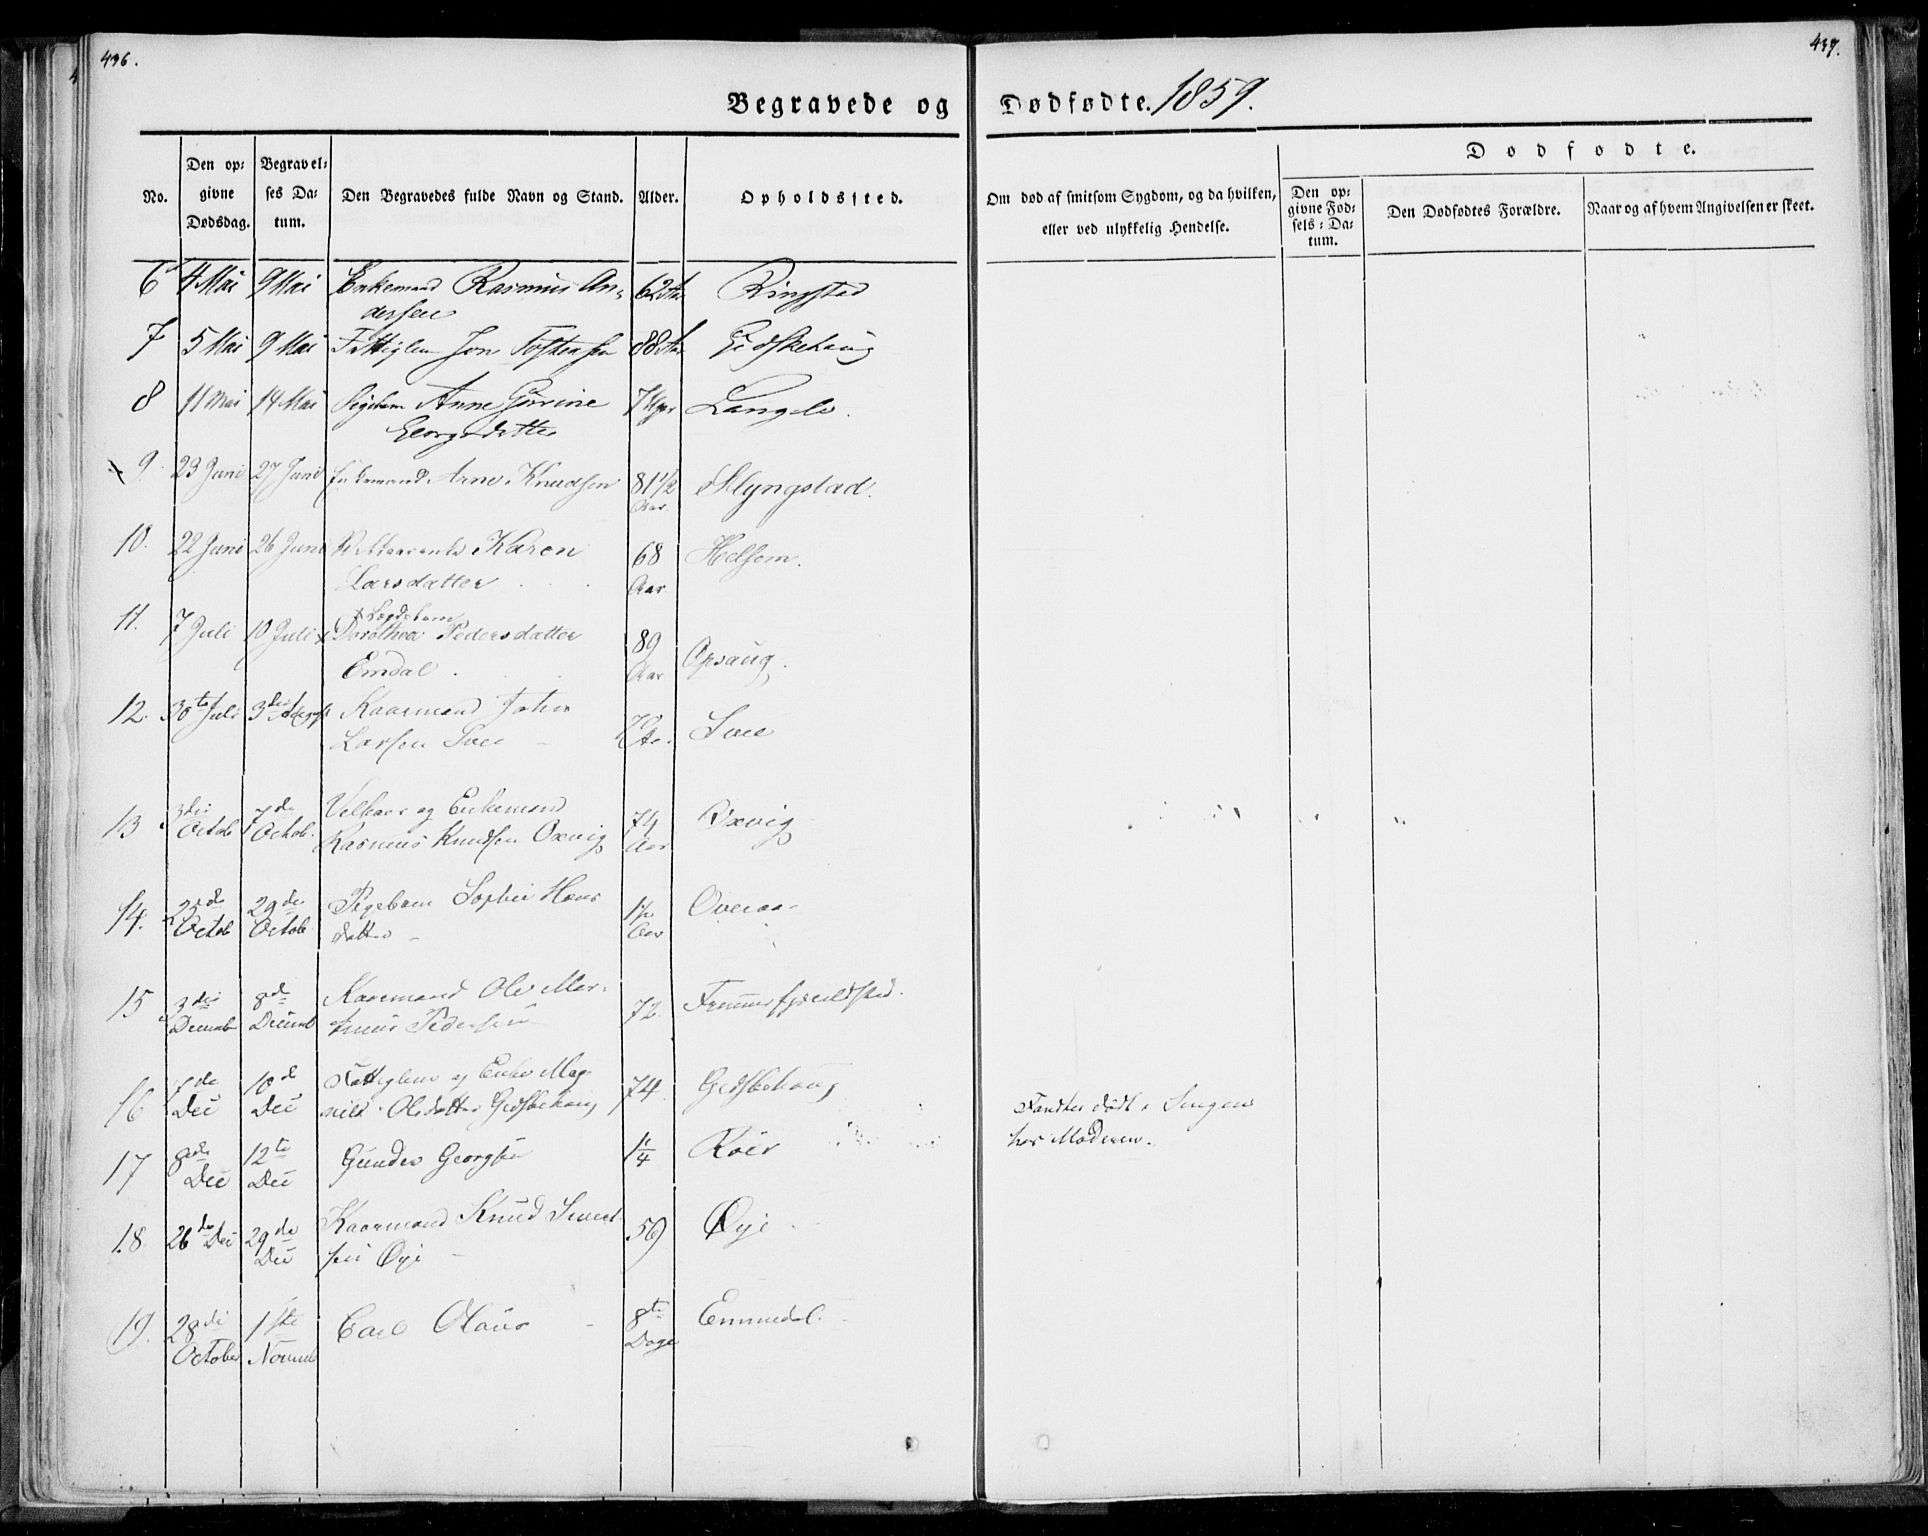 436.
437.
Begravede og Dødfødte. 1859.
No.
Den op= givne Dødsdag.
Begravel= ses Da= tum.
Den Begravedes fulde Navn og Stand.
Alder.
Opholdssted.
Om død af smitsom Sygdom, og da hvilken, eller ved ulykkelig Hendelse.
Dødfødte.
Den op= givne Fød= sels=Da= tum.
Den Dødfødtes Forældre.
Naar og af hvem Angivelsen er skeet.
6 4 Mai 9 Mai Enkemand Rasmus An= 62 Aar Ringstad
dersen
7 5 Mai 9 Mai Fattiglem Jon Tostensen 88 Aar Gidskehaug
8 11 Mai 14 Mai Pigebarn Anne Gurine Langlo.
Georgsdatter
9. 23 Juni 27 Juni Enkemand Arne Knudsen 81 1/2 Slyngstad.
Aar
10. 22 Juni 26 Juni Karen 68 Helsem.
Larsdatter Aar
11. 7 Juli 10 Juli x x Lægdelem
Dorothea Pedersdatter 89
Emdal Aar Opsaug.
12. 30te Juli 3die August Kaarmand John
Larsen Svee Svee
13 3die 7de Velkaar og Enkemand 74 Oxvig
Octob Octob. Rasmus Knudsen Oxvig Aar
14. 29de Pigebarn Sophie Hans 1/2 Overaa
Octob Octob datter Aar
15 3die 8de Kaarmand Ole Mar= 72.
Decemb Decemb Pedersen
16 7de 10de Fattiglem og Enke Mag= 74. Gidskehaug
Dec Dec nild Olsdatter Gidskehaug
Fandtes død i Sengen
hos Moderen.
17 8de 12te Gunder Georgsen 1/4 Röer
Dec Dec
18. 26de Dec 29de Kaarmand Knud 59 Øye
Dec sen Øye
19. 28de 1ste Carl Olaus 8te Emmedal.
October Novemb Dage